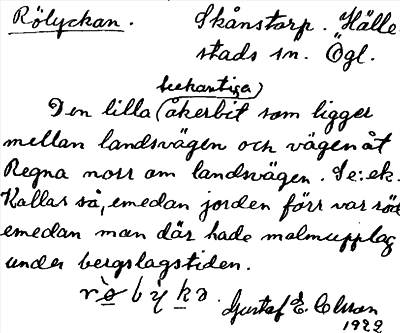 Rölyckan. Skånstorp. Hälle-
stads sn. Ögl.
trekantiga)
Den lilla (åkerbit som ligger
mellan landsvägen och vägen åt
Regna norr om landsvägen. Se: ek.
Kallas så, emedan jorden förr var röd
emedan man där hade malmupplag
under bergslagstiden.
Gustaf E. Olsson
1922